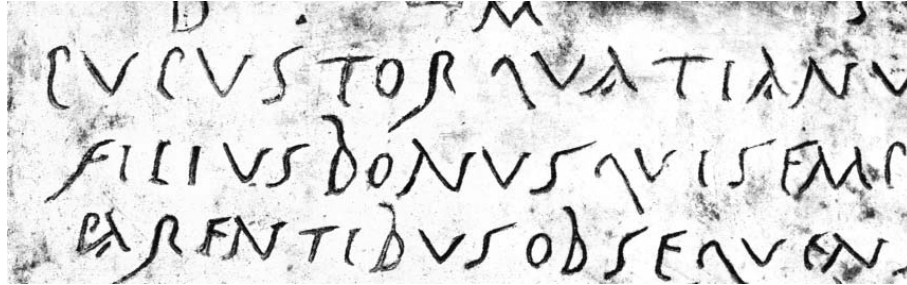 D · M S
CVCVS TORQVATIANV
FILIVS BONVS QVI SEMP
PARENTIBVS OBSEQVEN